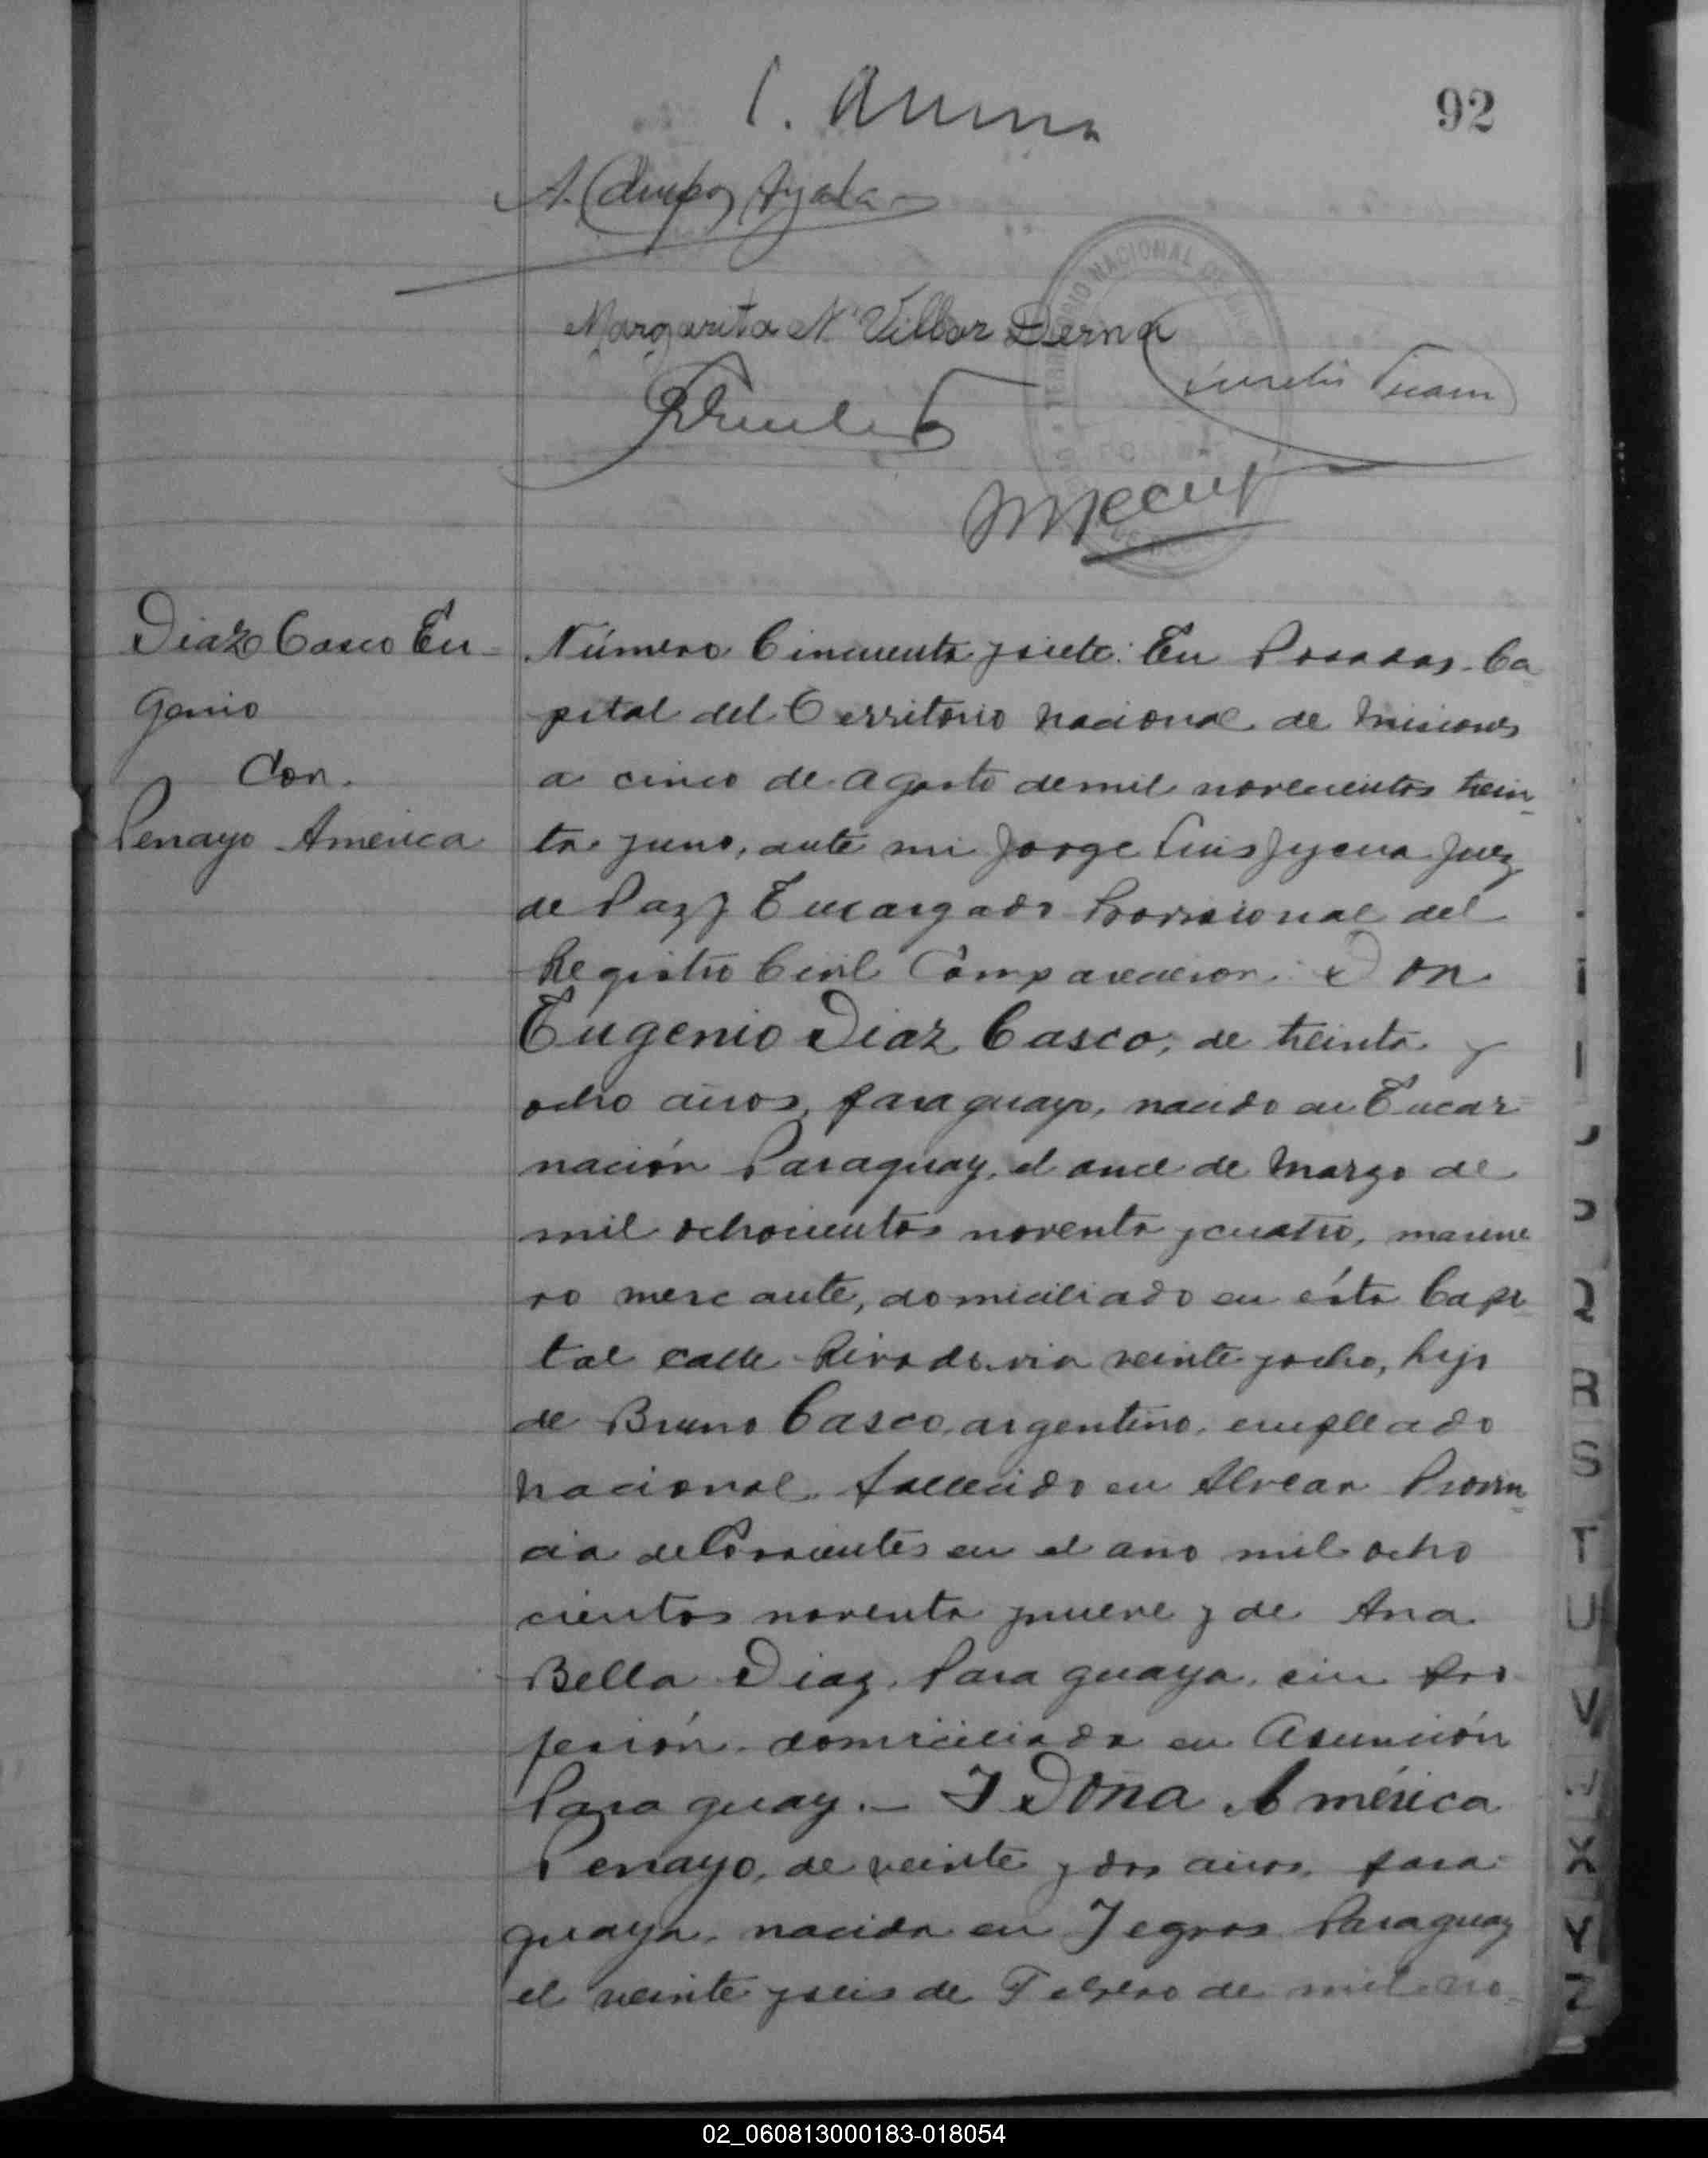 92
A. Campos Ayala
Margarita N. Villar Serna
TERRITORIO NACIONAL DE
Diaz Casco Eu-
genio
Con.
Penayo America
Número Cincuenta y siete: En Posadas, Ca-
pital del Territorio Nacional de Misiones
a cinco de Agosto de mil novecientos trein-
ta y uno, ante mi Jorge Luis Juez
de Paz y Encargado Provisional del
Registro Civil Comparecieron: Don
Eugenio Diaz Casco, de treinta y
ocho años, paraguayo, nacido en Encar-
nación Paraguay, el once de Marzo de
mil ochocientos noventa y cuatro, marine-
ro mercante, domiciliado en ésta Capi-
tal calle Rivadavia veinte y ocho, hijo
de Bruno Casco, argentino, empleado
Nacional, fallecido en Alvear Provin-
cia de Corrientes en el año mil ocho
cientos noventa y nueve y de Ana
Bella Diaz, Paraguaya, sin pro
fesión, domiciliada en Asunción
Paraguay.— Y Doña América
Penayo, de veinte y dos años, para-
guaya, nacida en Yegros Paraguay
el veinte y seis de Febrero de mil no-
I
J
Q
R
S
T
U
V
X
Y
Z
02_060813000183-018054